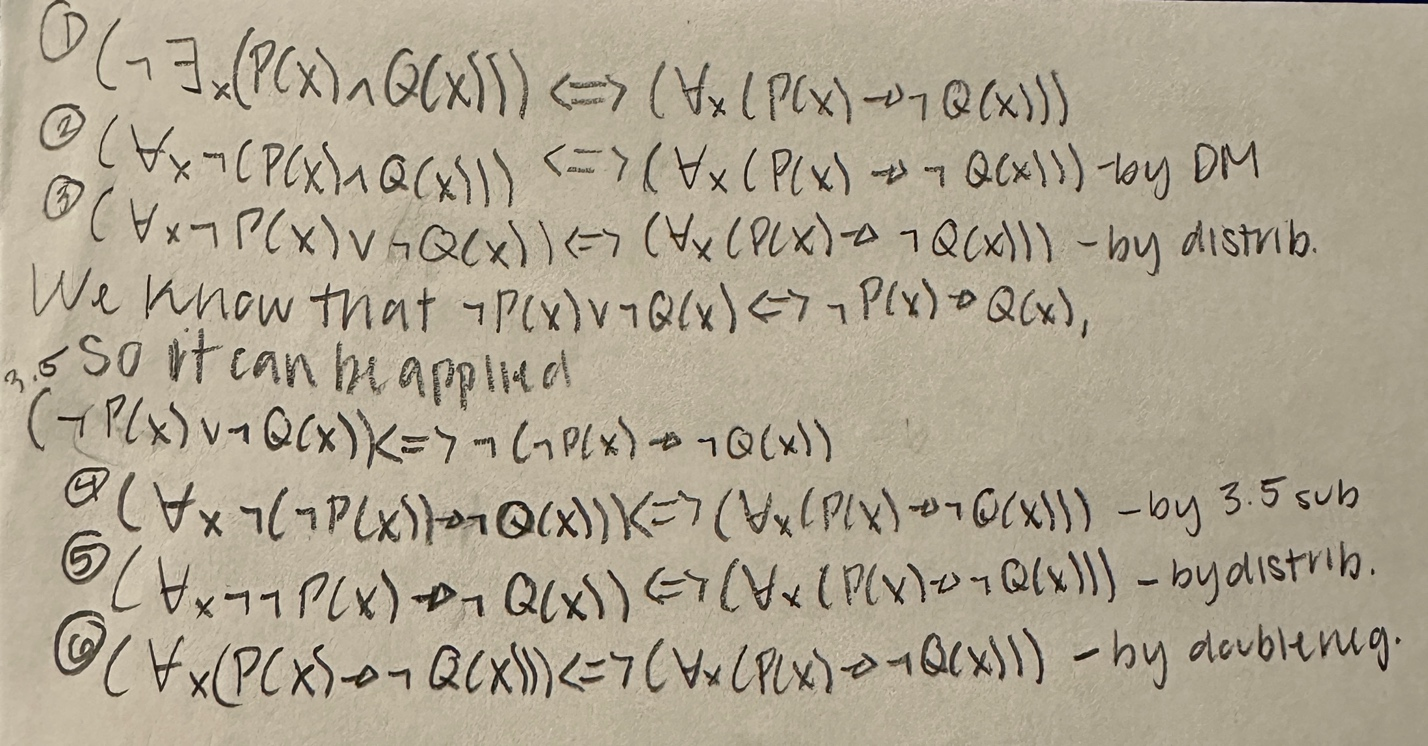 ① (¬∃x(P(x)∧Q(x))) <=> (∀x(P(x)→¬Q(x)))
② (∀x¬(P(x)∧Q(x))) <=> (∀x(P(x)→¬Q(x))) -by DM
③ (∀x¬P(x)∨¬Q(x)) <=> (∀x(P(x)→¬Q(x))) -by distrib.
We know that ¬P(x)∨¬Q(x) <=> ¬P(x)→Q(x),
3.5 So it can be applied
(¬P(x)∨¬Q(x)) <=> ¬(¬P(x)→¬Q(x))
④ (∀x¬(¬P(x))→¬Q(x))) <=> (∀x(P(x)→¬Q(x))) -by 3.5 sub
⑤ (∀x¬¬P(x)→¬Q(x)) <=> (∀x(P(x)→¬Q(x))) -by distrib.
⑥ (∀x(P(x)→¬Q(x))) <=> (∀x(P(x)→¬Q(x))) -by doubleneg.